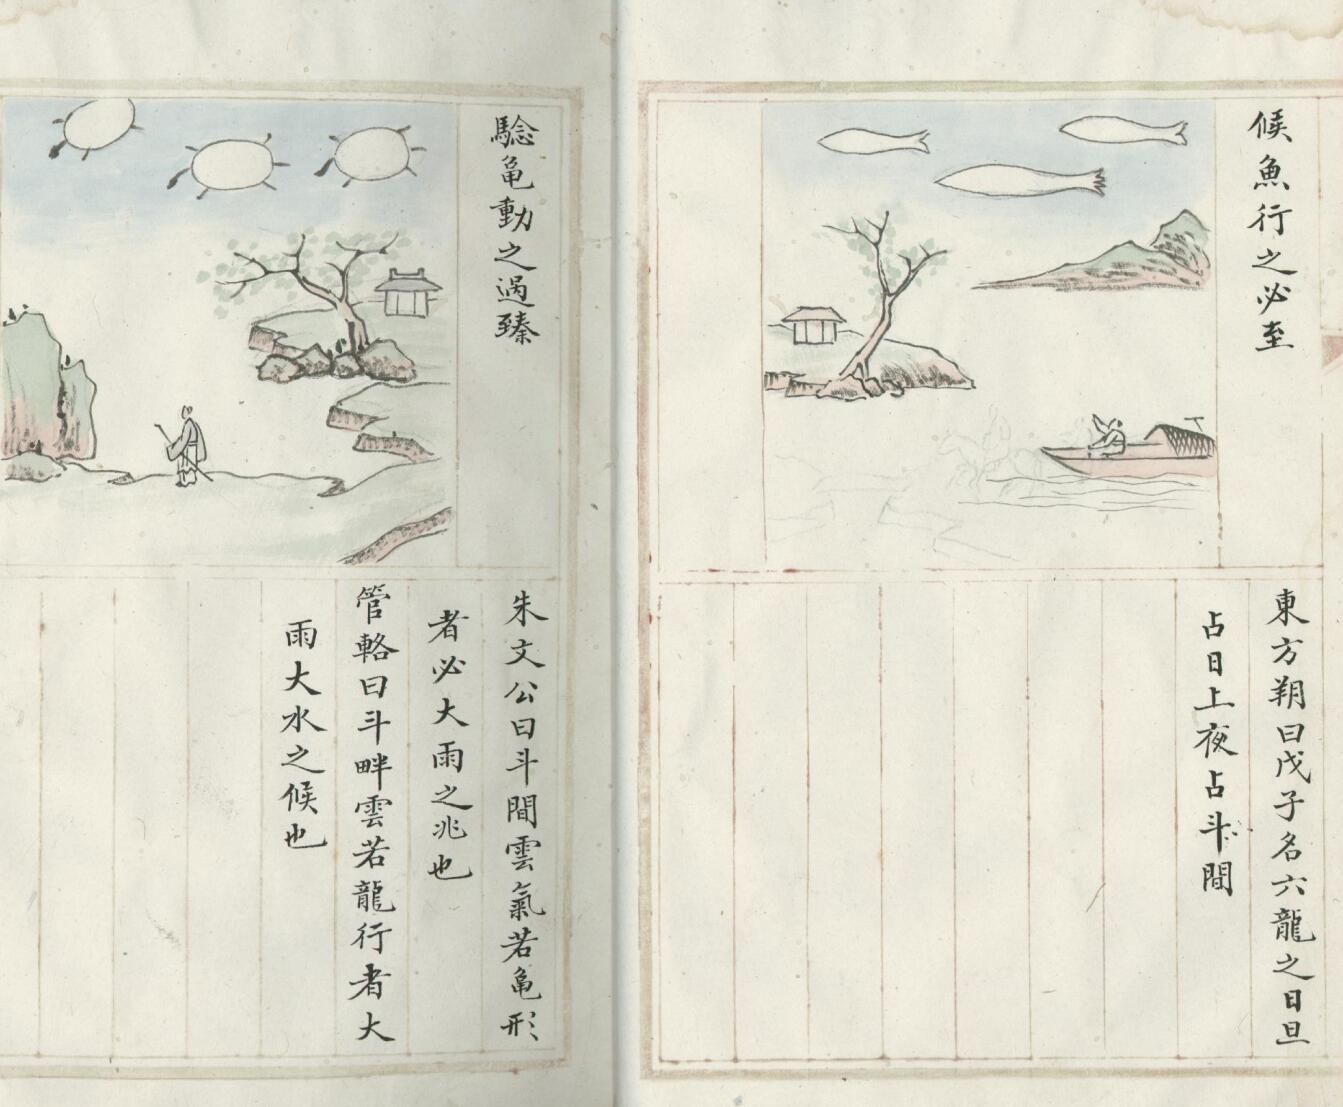 候魚行之必至
東方朔曰戊子名六龍之日旦
占日上夜占斗間
騐龜動之遄臻
朱文公曰斗間雲氣若龜形
者必大雨之兆也
管輅曰斗畔雲若龍行者大
雨大水之候也